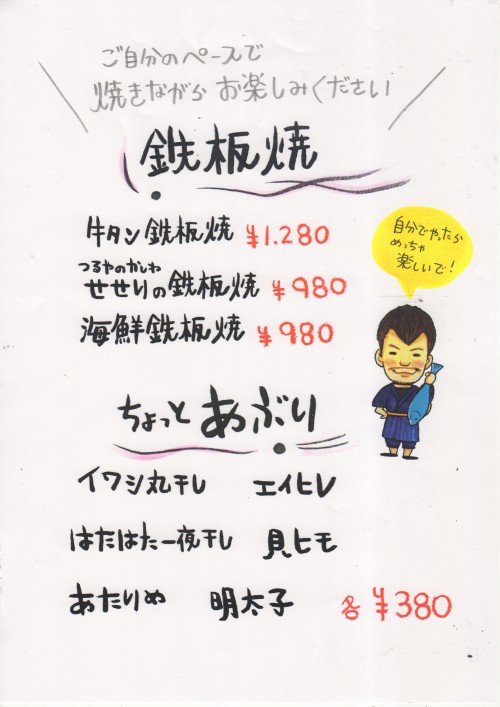 ご自分のペースで
焼きながら お楽しみください
鉄板焼
牛タン鉄板焼 ¥1.280
つるやのかしわ
せせりの鉄板焼 ¥980
海鮮鉄板焼 ¥980
自分でやったら
めっちゃ
楽しいで!
ちょっと あぶり
イワシ丸干し エイヒレ
はたはた一夜干し 貝ヒモ
あたりめ 明太子 各¥380